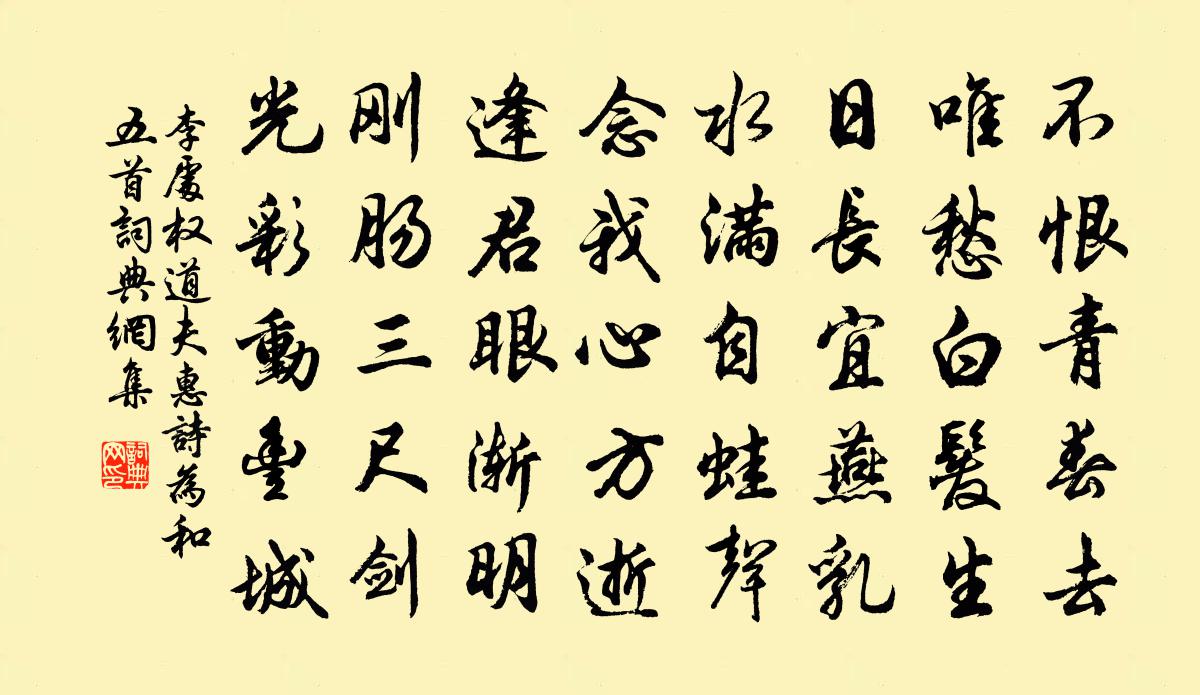 不恨青春去
唯愁白髮生
日長宜燕乳
水滿自蛙聲
念我心方逝
逢君眼渐明
刚肠三尺剑
光彩動豐城
李處权道夫惠詩為和
五首詞典網集
詞典
网印